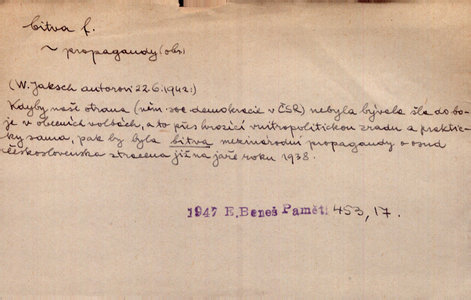 bitva f.
~ propagandy (obr)
(W. Jaksch autorovi 22.6.1942:)
Kdyby naše strana (něm. soc. demokracie v ČSR) nebyla bývala šla do bo-
je v obecních volbách, a to přes hrozící vnitropolitickou zradu a praktic-
ky sama, pak by byla bitva mezinárodní propagandy o osud
Československa ztracena již na jaře roku 1938.
1947 E. Beneš Paměti 453, 17.